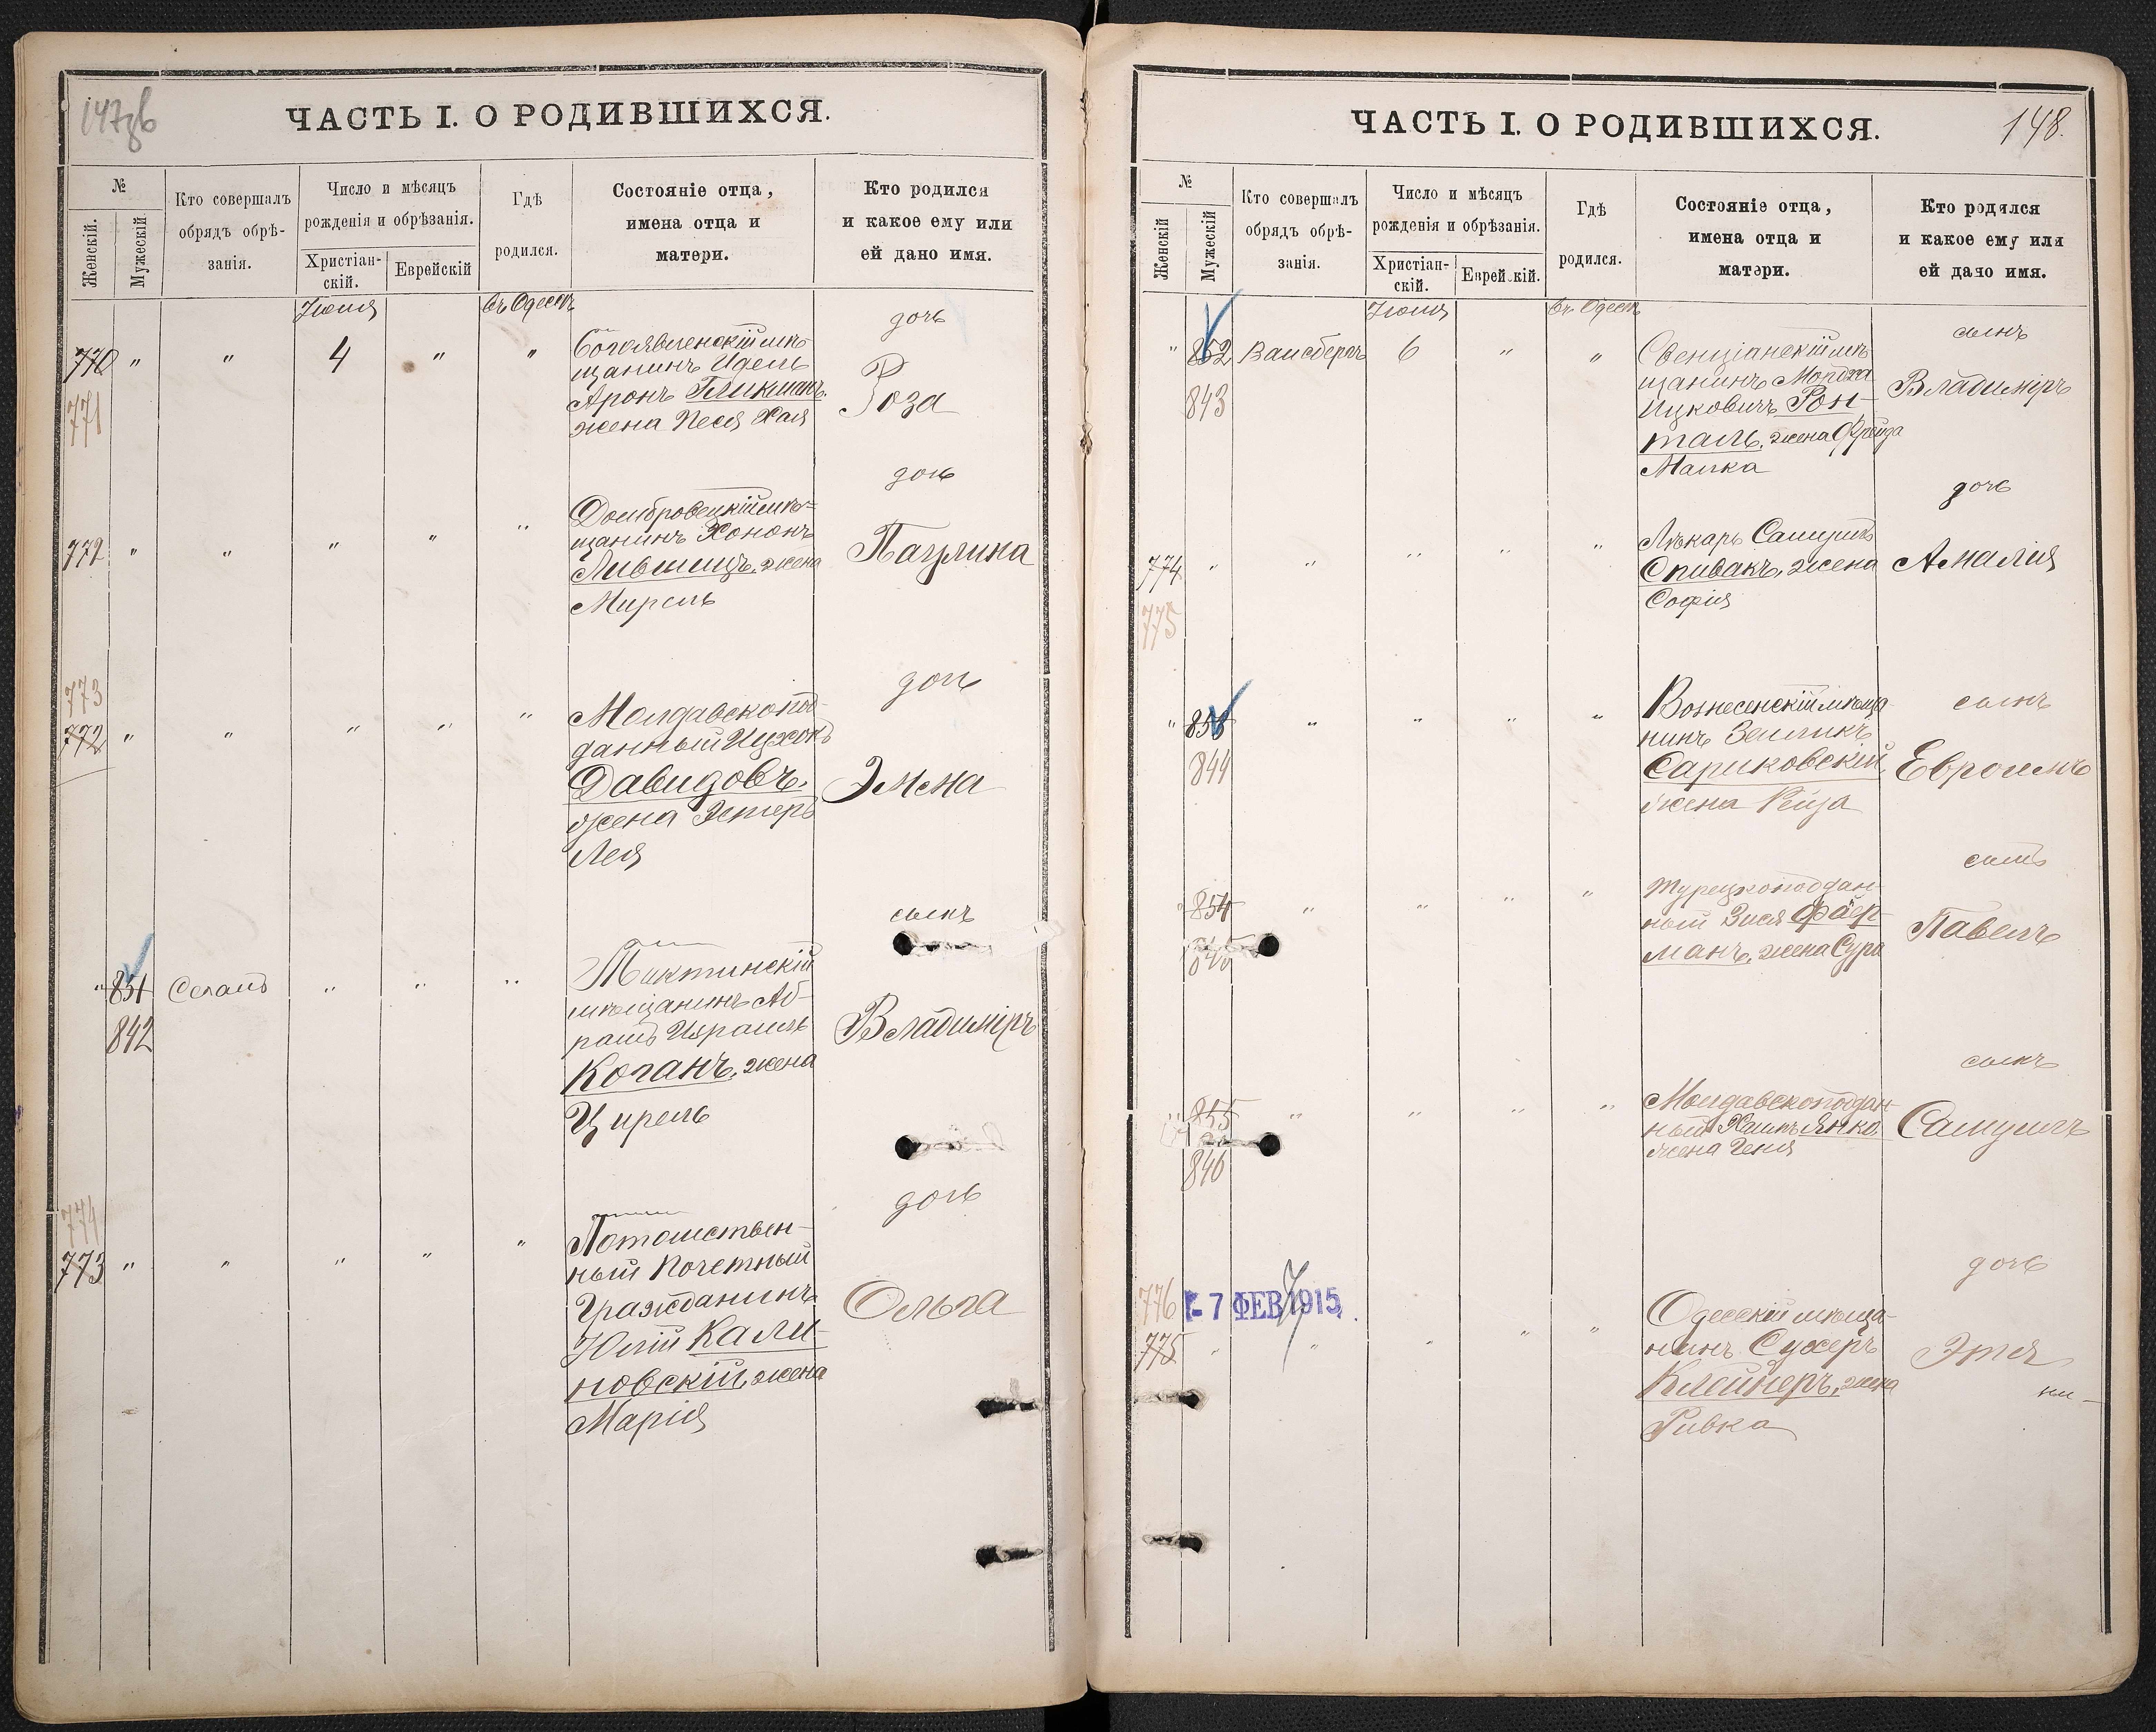 147об
ЧАСТЬ I. О РОДИВШИХСЯ.
№
Женскій.
Мужескій
Кто совершалъ
обрядъ обрѣ-
занія.
Число и мѣсяцъ
рожденія и обрѣзанія.
Христіан-
скій.
Еврейскій
Гдѣ
родился.
Состояніе отца,
имена отца и
матери.
Кто родился
и какое ему или
ей дано имя.
Іюня
въ Одессѣ
дочь
770 " " 4 " "
771
Боголвленскій мѣ-
щанинъ Идель
Аронъ Гликманъ.
жена Песя Хая
Роза
дочь
772 " " " " "
Домбровецкій мѣ-
щанинъ Хононъ
Лившицъ, жена
Мирель
Паулина
дочь
773
772 " " " " "
Молдавскопод-
данный Ицхокъ
Давидовъ.
жена Эстеръ
Лея
Эмма
сынъ
" 851
842
" " "
мѣщанинъ Аб-
рамъ
Коганъ, жена
Цирель
Владиміръ
дочь
774
773 " " " " "
Потомствен-
ный Почетный
Гражданинъ
Юлій Кали-
новскій, жена
Марія
Ольга
148.
ЧАСТЬ I. О РОДИВШИХСЯ.
№
Женскій
Мужескій
Кто совершалъ
обрядъ обрѣ-
занія.
Число и мѣсяцъ
рожденія и обрѣзанія.
Христіан-
скій.
Еврейскій.
Гдѣ
родился.
Состояніе отца,
имена отца и
матери.
Кто родился
и какое ему или
ей дано имя.
Іюня
въ Одессѣ
сынъ
" 852 Вайсбергъ 6 " "
843
Свенціанскій мѣ-
щанинъ Мордха
Ицковичъ Рон-
таль, жена Фрейда
Малка
Владиміръ
дочь
774 " " " " "
775
Лѣкарь Самуилъ
Спивакъ, жена
Софія
Амалія
сынъ
" 853 " " " "
844
Вознесенскій мѣща-
нинъ Зеликъ
Сариковскій,
жена Рейза
Евроимъ
сынъ
" 854 " " " "
845
Турецкоподдан-
ный Зися Фаер-
манъ, жена Сура
Павелъ
сынъ
" 855 " " " "
846
Молдавскоподдан-
ный Хаимъ Янко,
жена Геня
Самуилъ
дочь
776
- 7 ФЕВ 1915
775 " " " " "
Одесскій мѣща-
нинъ Сухеръ
Клейнеръ, жена
Ривка
Этя